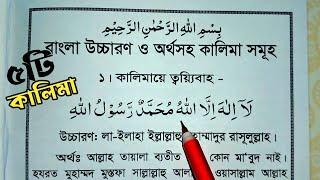 بِسْمِ اللهِ الرَّحْمٰنِ الرَّحِيْمِ
বাংলা উচ্চারণ ও অর্থসহ কালিমা সমূহ
৫টি
কালিমা
১। কালিমায়ে ত্বয়্যিবাহ -
لَآ اِلٰهَ اِلَّا اللهُ مُحَمَّدٌ رَّسُوْلُ اللهِ
উচ্চারণ: লা-ইলাহা ইল্লাল্লাহু ম্মাদুর রাসূলুল্লাহ।
অর্থঃ আল্লাহ তায়ালা ব্যতীত কোন মা'বুদ নাই।
হযরত মুহাম্মদ মুস্তফা সাল্লাল্লাহু আলা ওয়াসাল্লাম আল্লাহ